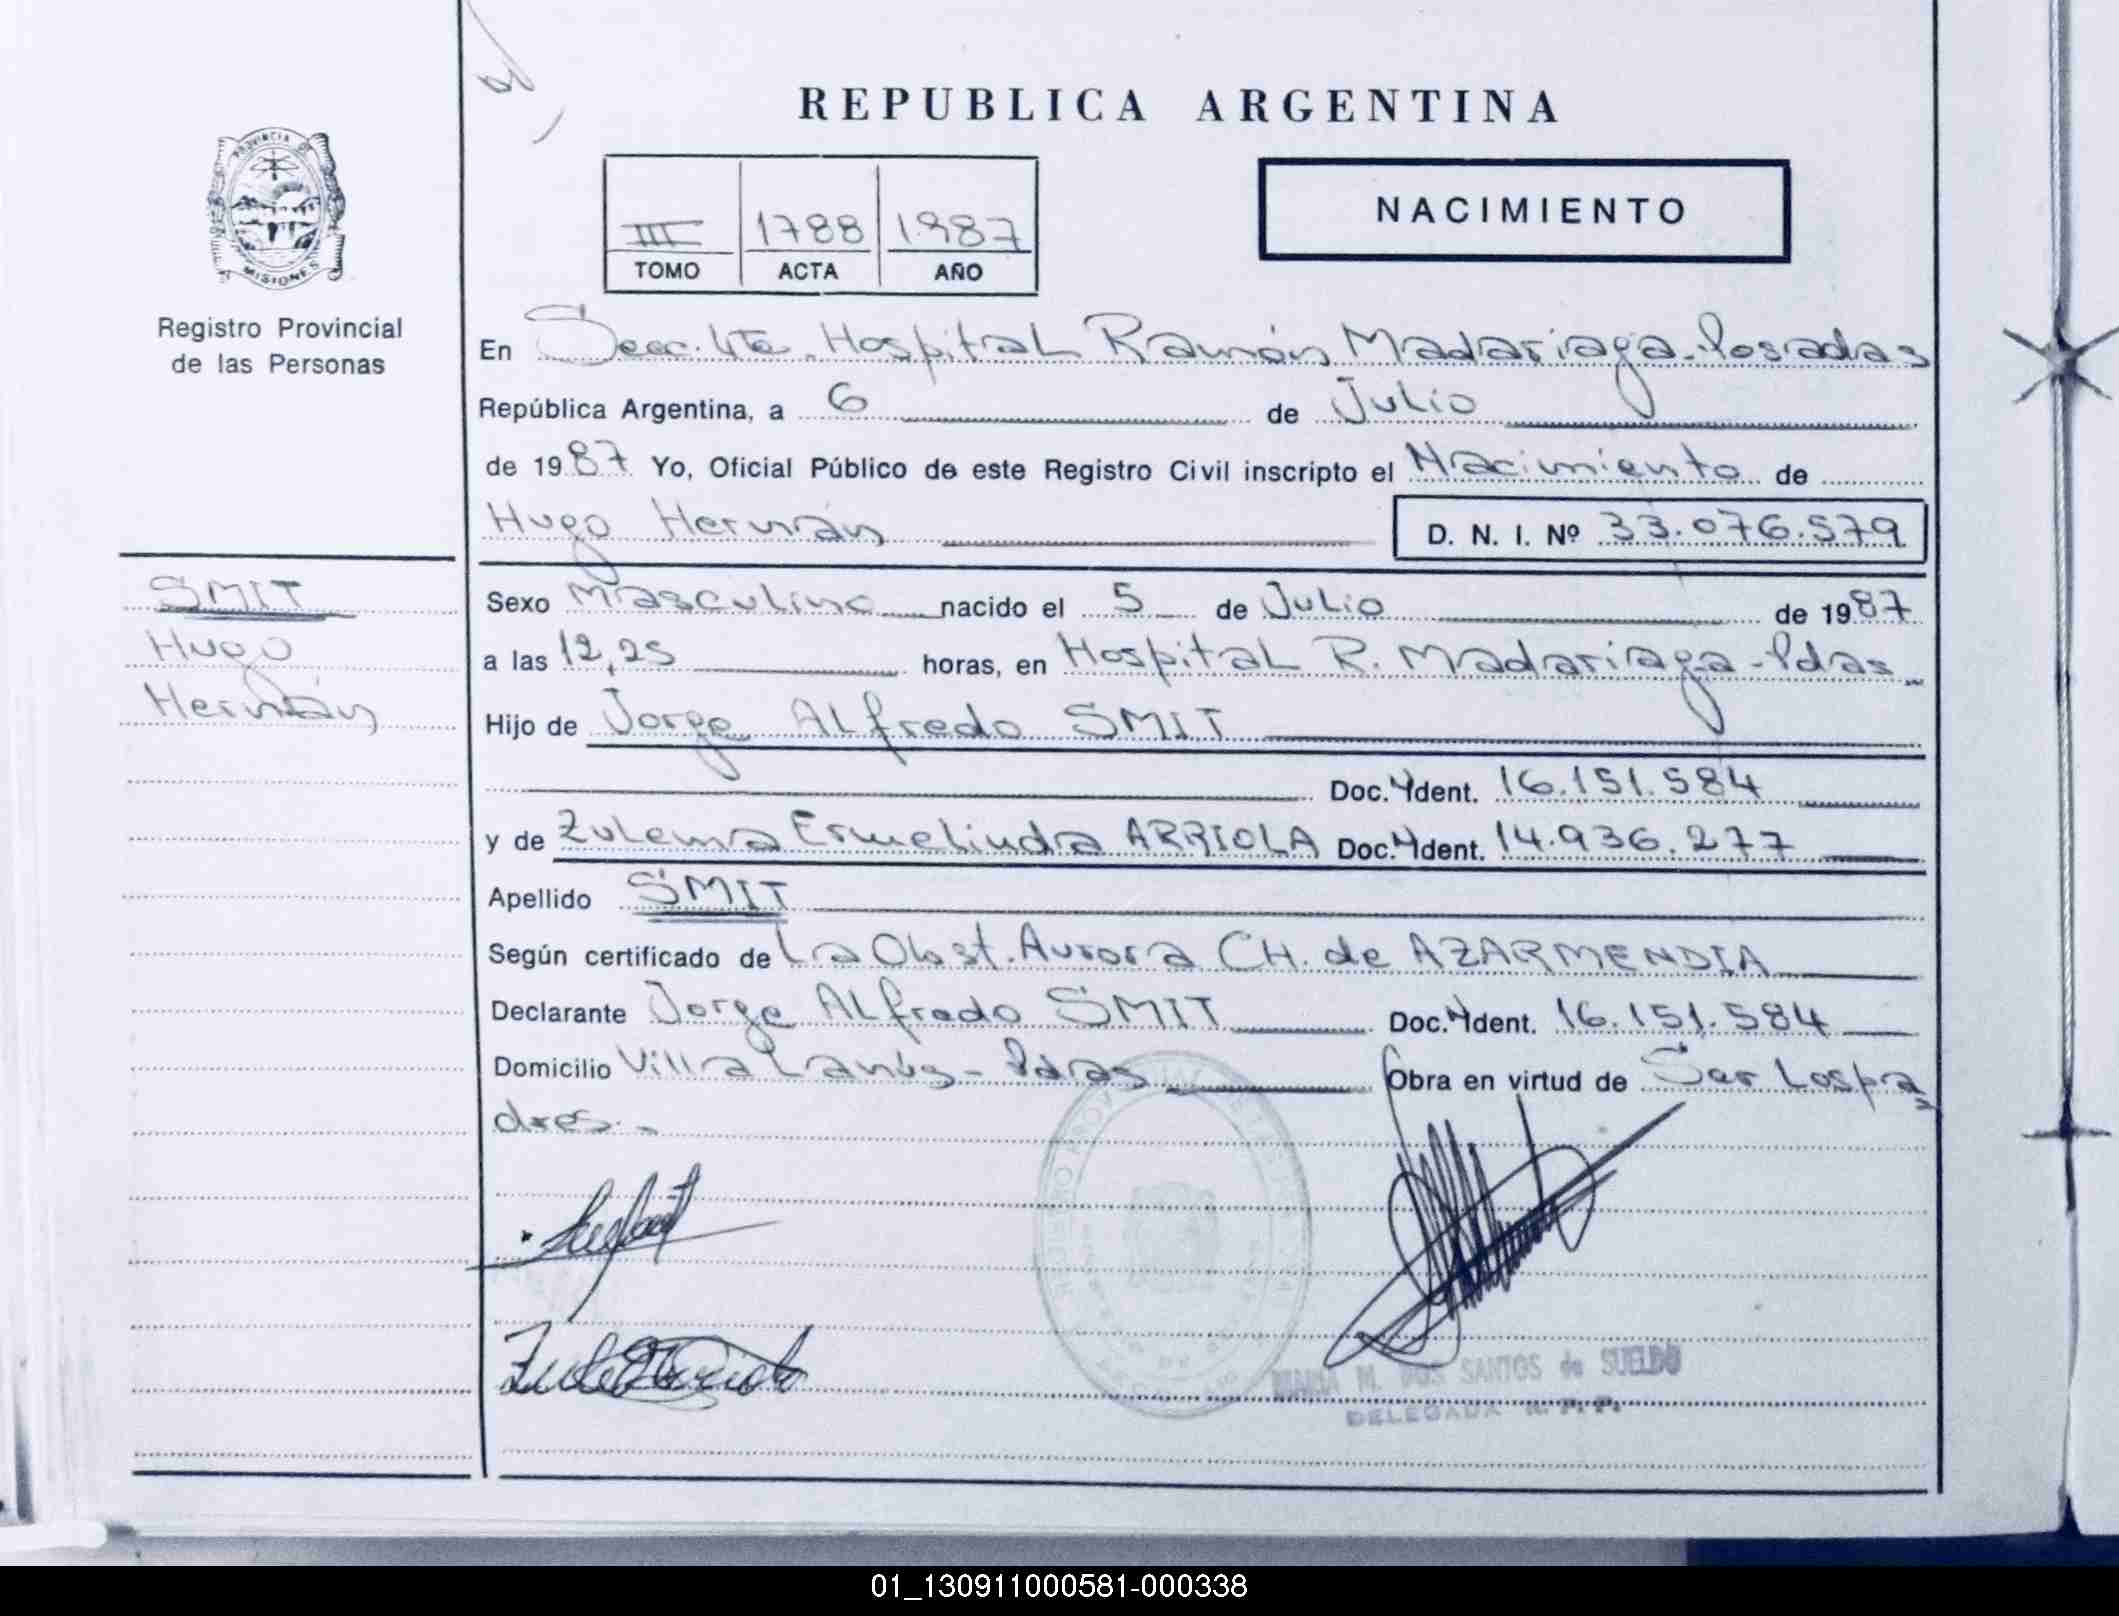 REPUBLICA ARGENTINA
PROVINCIA DE
MISIONES
Registro Provincial
de las Personas
III 1788 1987
TOMO ACTA AÑO
NACIMIENTO
En Secc. 4ta. Hospital Ramón Madariaga - Posadas
República Argentina, a 6 de Julio
de 1987 Yo, Oficial Público de este Registro Civil inscripto el Nacimiento de
Hugo Hernán D. N. I. Nº 33.076.579
SMIT
Hugo
Hernán
Sexo Masculino nacido el 5 de Julio de 1987
a las 12,25 horas, en Hospital R. Madariaga - Pdas
Hijo de Jorge Alfredo SMIT
Doc. Ydent. 16.151.584
y de Zulema Ermelinda ARRIOLA Doc. Ydent. 14.936.277
Apellido SMIT
Según certificado de La Obst. Aurora CH. de AZARMENDIA
Declarante Jorge Alfredo SMIT Doc. Ydent. 16.151.584
Domicilio Villa Lanús - Pdas Obra en virtud de Ser Los pa
dres. -
M. DOS SANTOS de SUELDO
DELEGADA R. P. P.
01_130911000581-000338